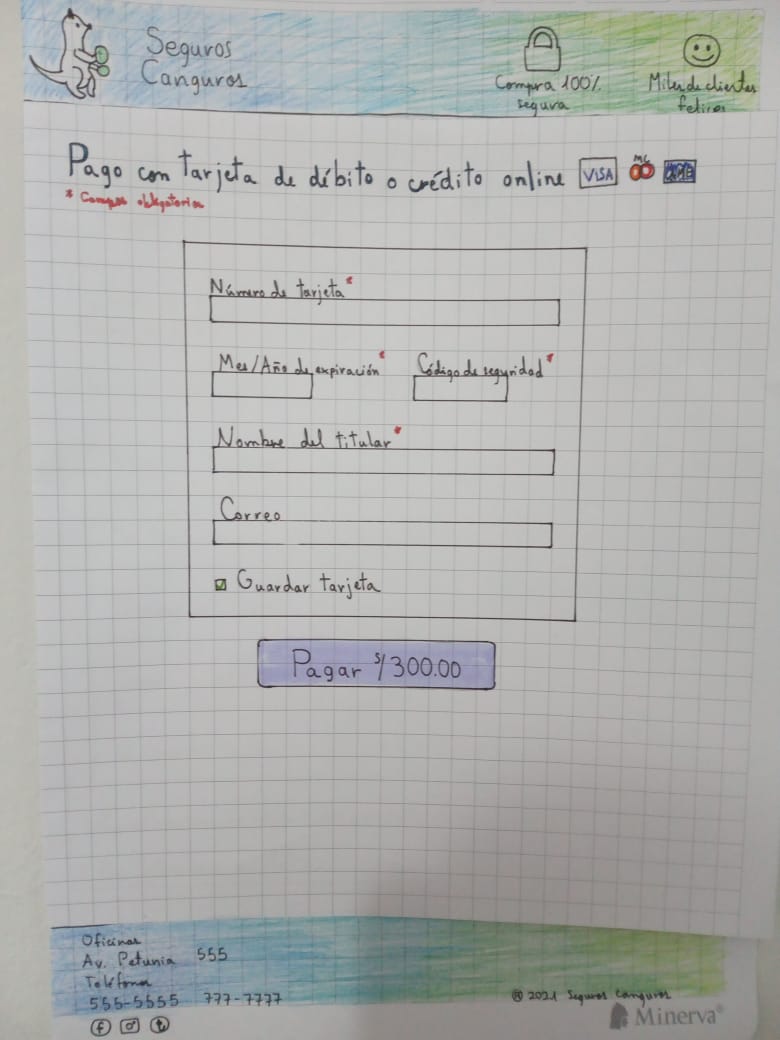 Seguros
Canguros
Compra 100%
segura
Miles de clientes
felices
Pago con tarjeta de débito o crédito online VISA MC
* Campos obligatorios
Número de tarjeta*
Mes/Año de expiración* Código de seguridad*
Nombre del titular*
Correo
Guardar tarjeta
Pagar S/300.00
Oficinas
Av. Petunia 555
Teléfonos
555-5555 777-7777
® 2021 Seguros Canguros
Minerva®